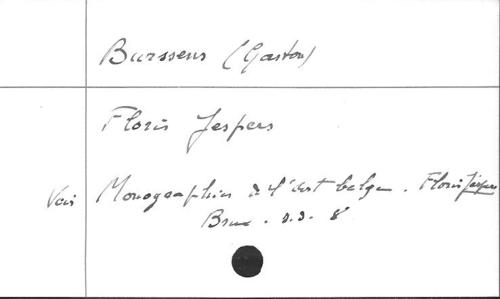 Burssens (Gaston)
Floris Jespers
Voir Monographies de l'art belge. Floris Jespers
Brux. s.d. 8°